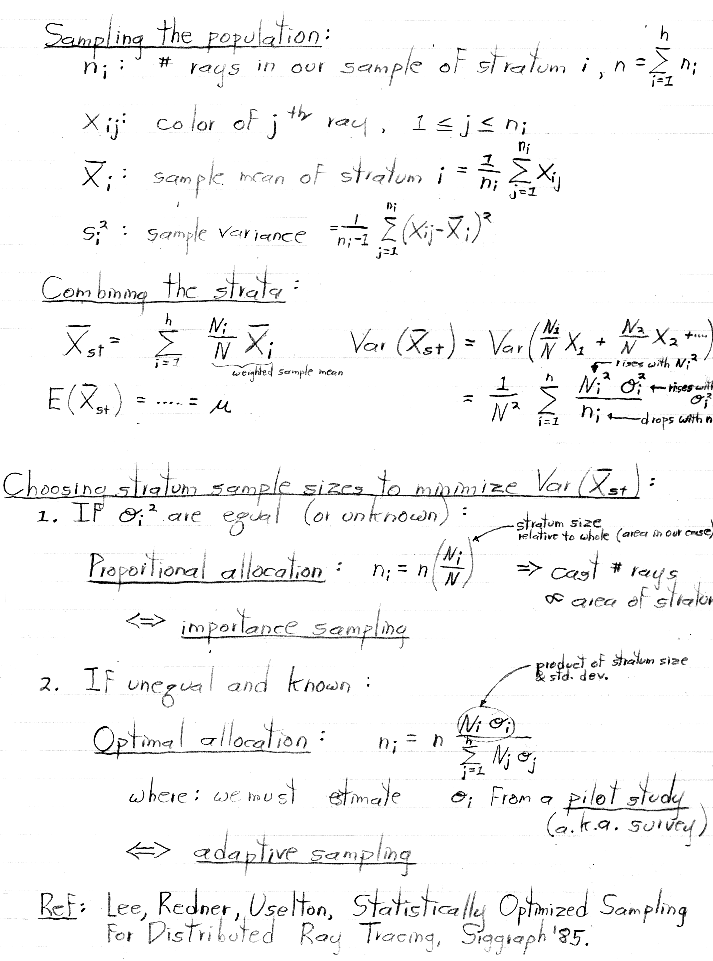 Sampling the population:
nᵢ: # rays in our sample of stratum i, n = Σᵢ₌₁ʰ nᵢ
Xᵢⱼ: color of jᵗʰ ray, 1 ≤ j ≤ nᵢ
X̅ᵢ: sample mean of stratum i = 1/nᵢ Σⱼ₌₁ⁿⁱ Xᵢⱼ
sᵢ²: sample variance = 1/(nᵢ-1) Σⱼ₌₁ⁿⁱ (Xᵢⱼ-X̅ᵢ)²
Combining the strata:
X̅st = Σᵢ₌₁ʰ Nᵢ/N X̅ᵢ Var (X̅st) = Var (N₁/N X₁ + N₂/N X₂ + ....)
weighted sample mean
rises with Nᵢ²
E(X̅st) = ..... = μ = 1/N² Σᵢ₌₁ʰ Nᵢ² σᵢ²/nᵢ
← rises with σᵢ²
← drops with n
Choosing stratum sample sizes to minimize Var (X̅st):
1. IF σᵢ² are equal (or unknown):
stratum size
relative to whole (area in our case)
Proportional allocation: nᵢ = n (Nᵢ/N) => cast # rays
∝ area of stratum
<=> importance sampling
product of stratum size
& std. dev.
2. IF unequal and known:
Optimal allocation: nᵢ = n (Nᵢ σᵢ)/Σⱼ₌₁ʰ Nⱼ σⱼ
where: we must etimate σᵢ From a pilot study
(a.k.a. survey)
<=> adaptive sampling
Ref: Lee, Redner, Uselton, Statistically Optimized Sampling
For Distributed Ray Tracing, Siggraph '85.